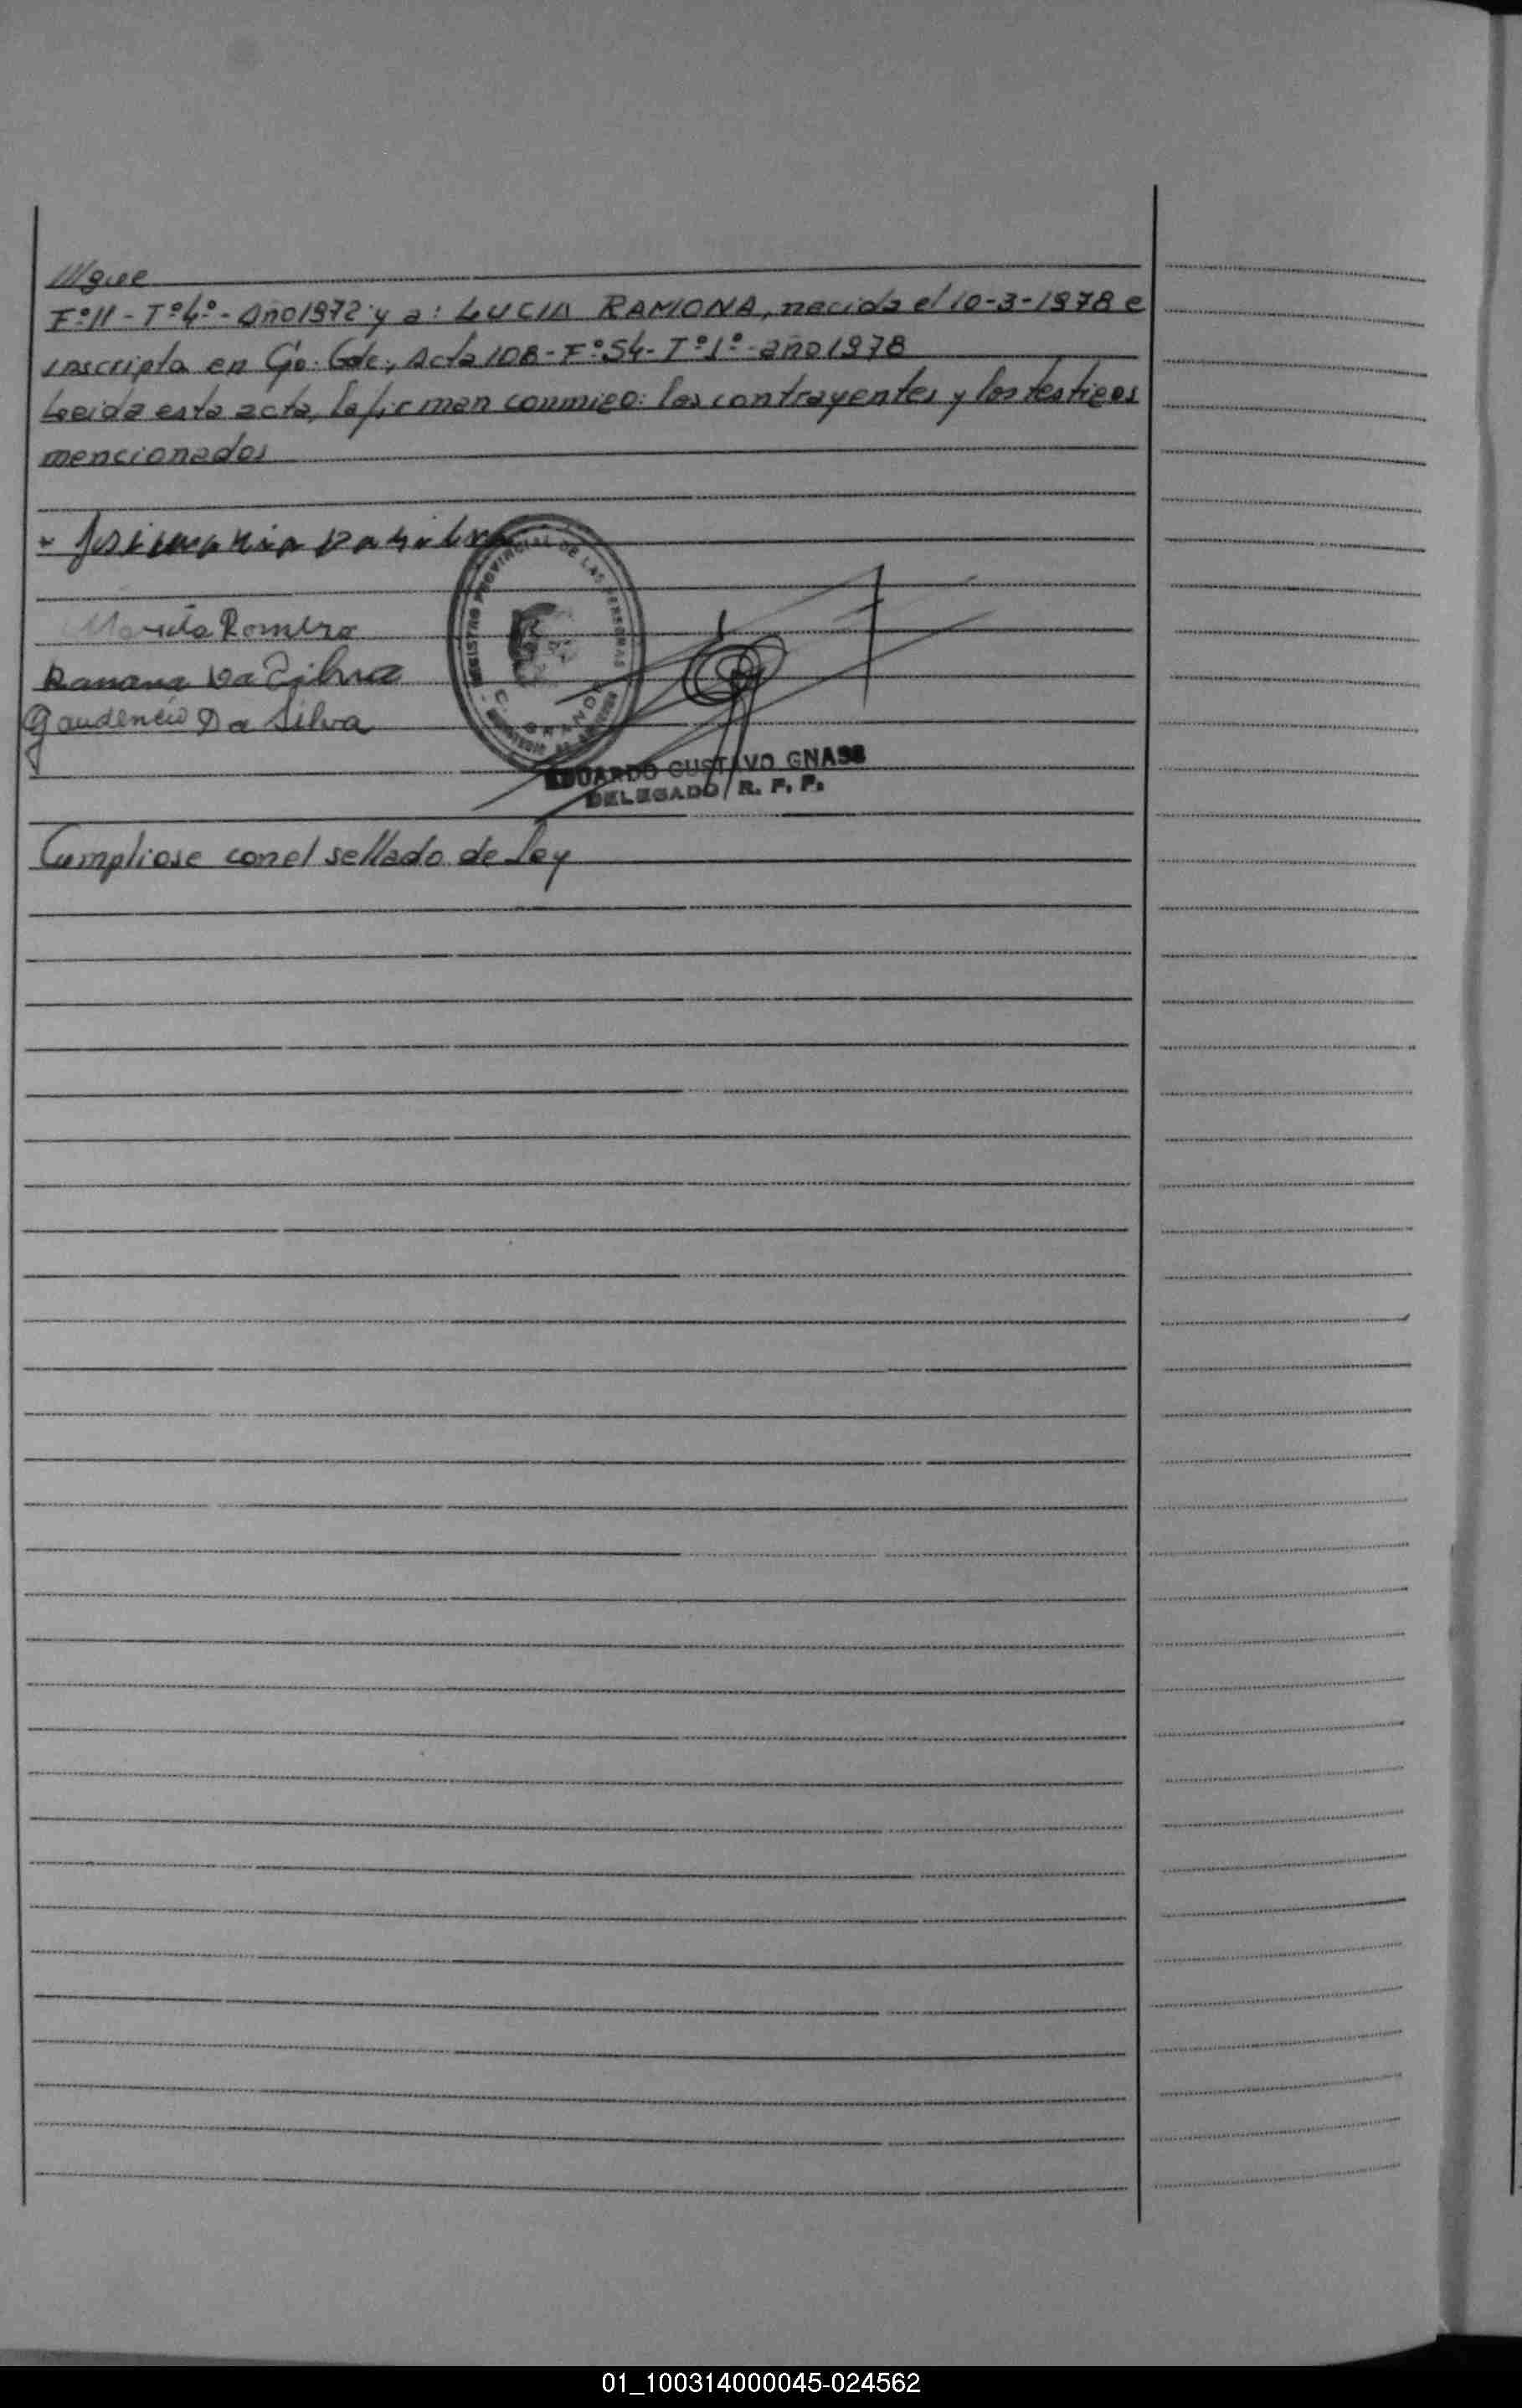 ///gue
Fº11 - Tº4º - Año1972 y a: LUCIA RAMONA, nacida el 10-3-1978 e
inscripta en Cpo. Gde., Acta 108 - Fº54 - Tº1º - año 1978
Leida esta acta, la firman conmigo: los contrayentes y los testigos
mencionados
Da Silva
Romero
Ramona Da Silva
Gaudencio Da Silva
REGISTRO PROVINCIAL DE LAS PERSONAS
C. GRANDE
EDUARDO GUSTAVO GNASS
DELEGADO R. P. P.
Cumpliose con el sellado de Ley
01_100314000045-024562